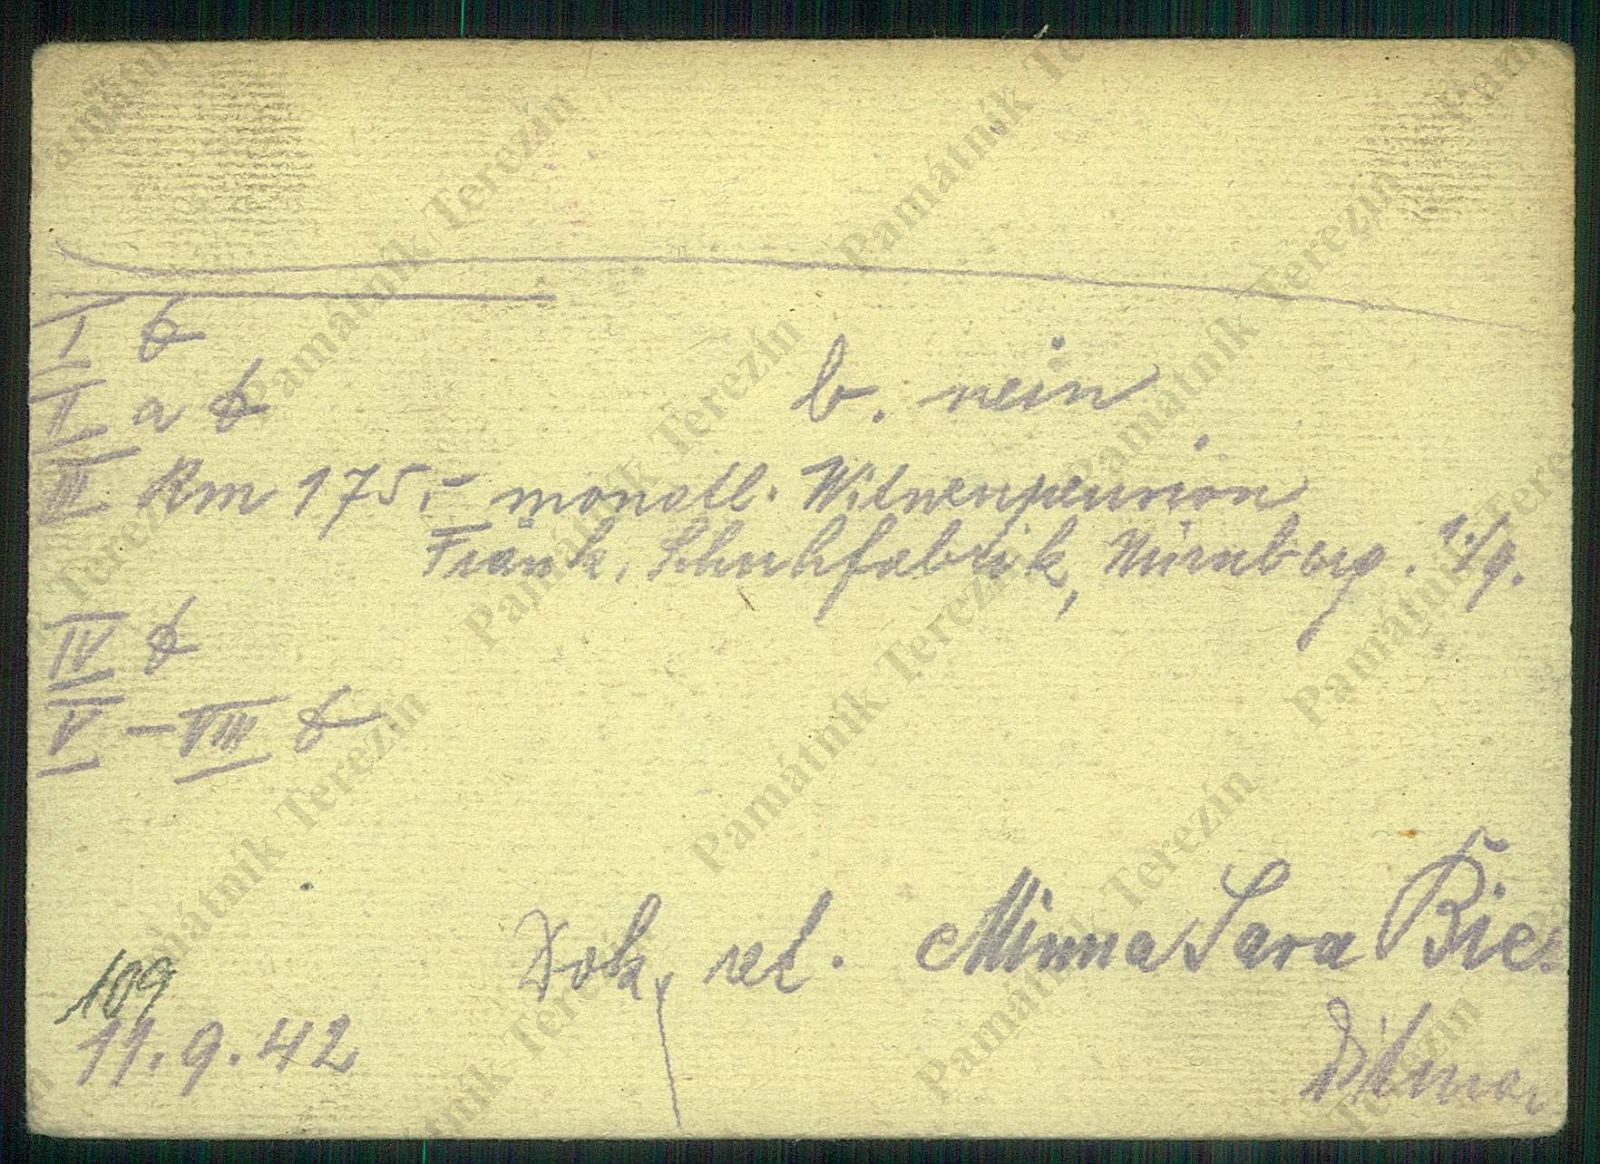 I ∅
II a ∅ b. nein
III Rm 175,- monatl. Witwenpension
Fränk. Schuhfabrik, Nürnberg. 1./9.
IV ∅
V - VIII ∅
Dok. ret. Minna Sara
109
11.9.42
Památník Terezín